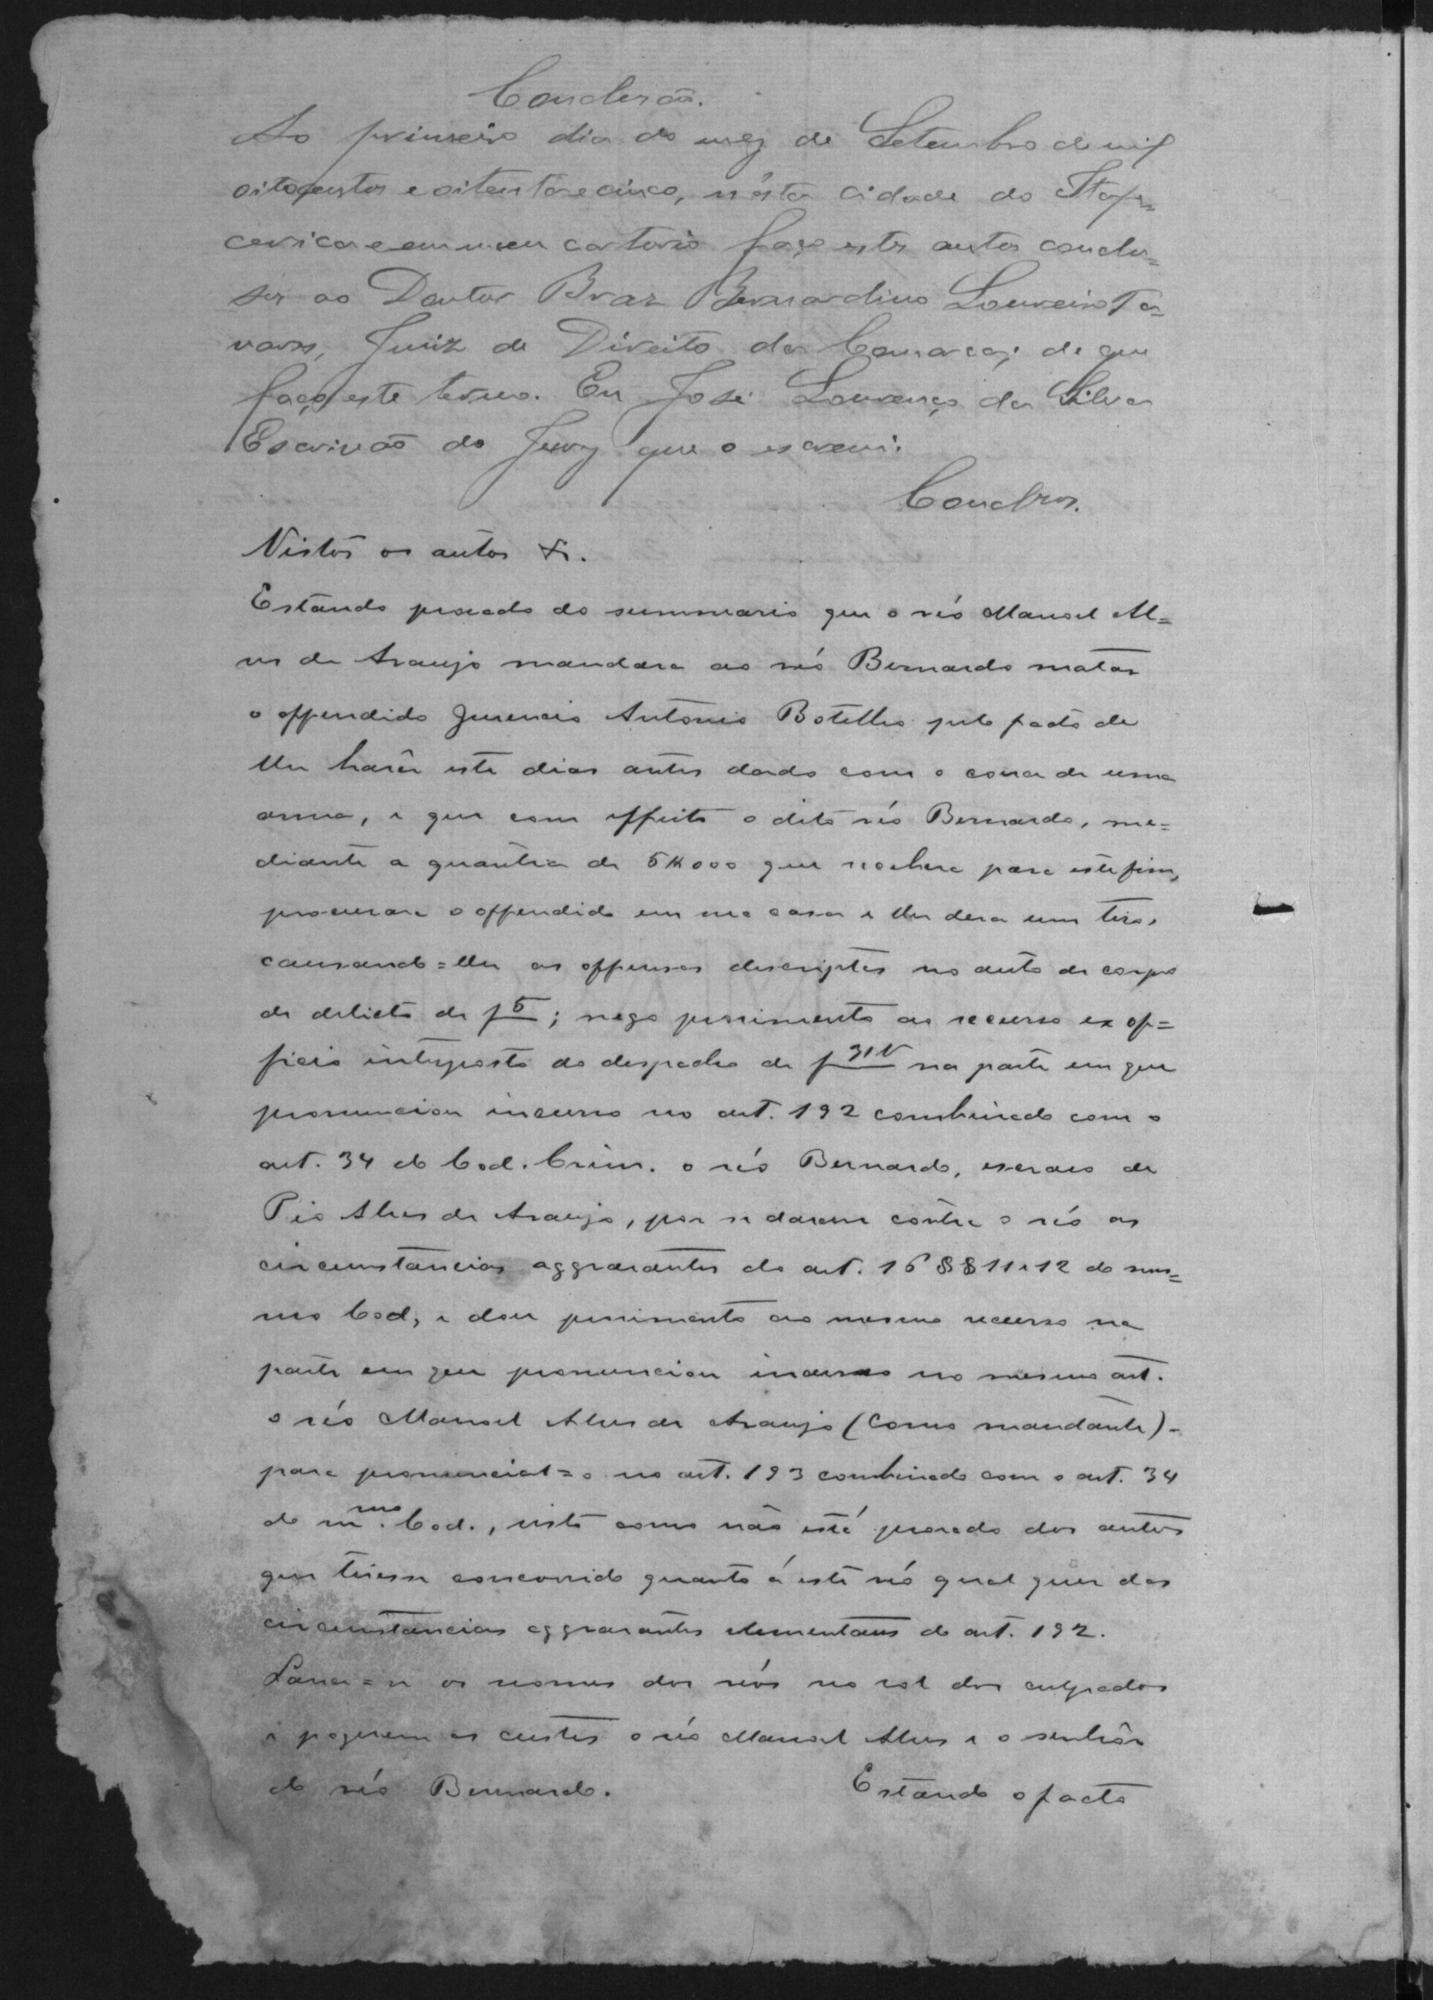 Conclusão.
Ao primeiro dia do mez de Setembro de mil
oitocentos e oitenta e cinco, n'esta cidade do Itape=
cerica e em meu cartorio faço estes autos conclu=
sos ao Doutor Braz Bernardino Loureiro Ta=
vares, Juiz de Direito da Comarca; de que
faço este termo. Eu José Lourenço da Silva
Escrivão do Jury que o escrevi.
Conclusos.
Vistos os autos &.
Estando provado do summario que o réo Manoel Al=
ves de Araujo mandara ao réo Bernardo matar
o offendido Juvencio Antonio Botelho pelo facto de
lhe haver este dias antes dado com o couce de uma
arma, e que com effeito o dito réo Bernardo, me=
diante a quantia de 5$000 que recebera para este fim,
procurara o offendido em sua casa e lhe dera um tiro,
causando=lhe as offensas descriptas no auto de corpo
de delicto de f 5; nego provimento ao recurso ex of=
ficio interposto do despacho de f 31V na parte em que
pronunciou incurso no art. 192 combinado com o
art. 34 do Cod. Crim. o réo Bernardo, escravo de
Pio Alves de Araujo, por se darem contra o réo as
circumstancias aggravantes do art. 16 §§ 11 e 12 do mes=
mo Cod; e dou provimento ao mesmo recurso na
parte em que pronunciou incurso no mesmo art.
o réo Manoel Alves de Araujo (como mandante) -
para pronuncial=o no art. 193 combinado com o art. 34
do mmo. Cod., visto como não está provado dos autos
que tivesse concorrido quanto á este réo qual quer das
circumstancias aggravantes elementares do art. 192.
Lance=se os nomes dos réos no rol dos culpados
e paguem as custas o réo Manoel Alves e o senhôr
do réo Bernardo. Estando o facto